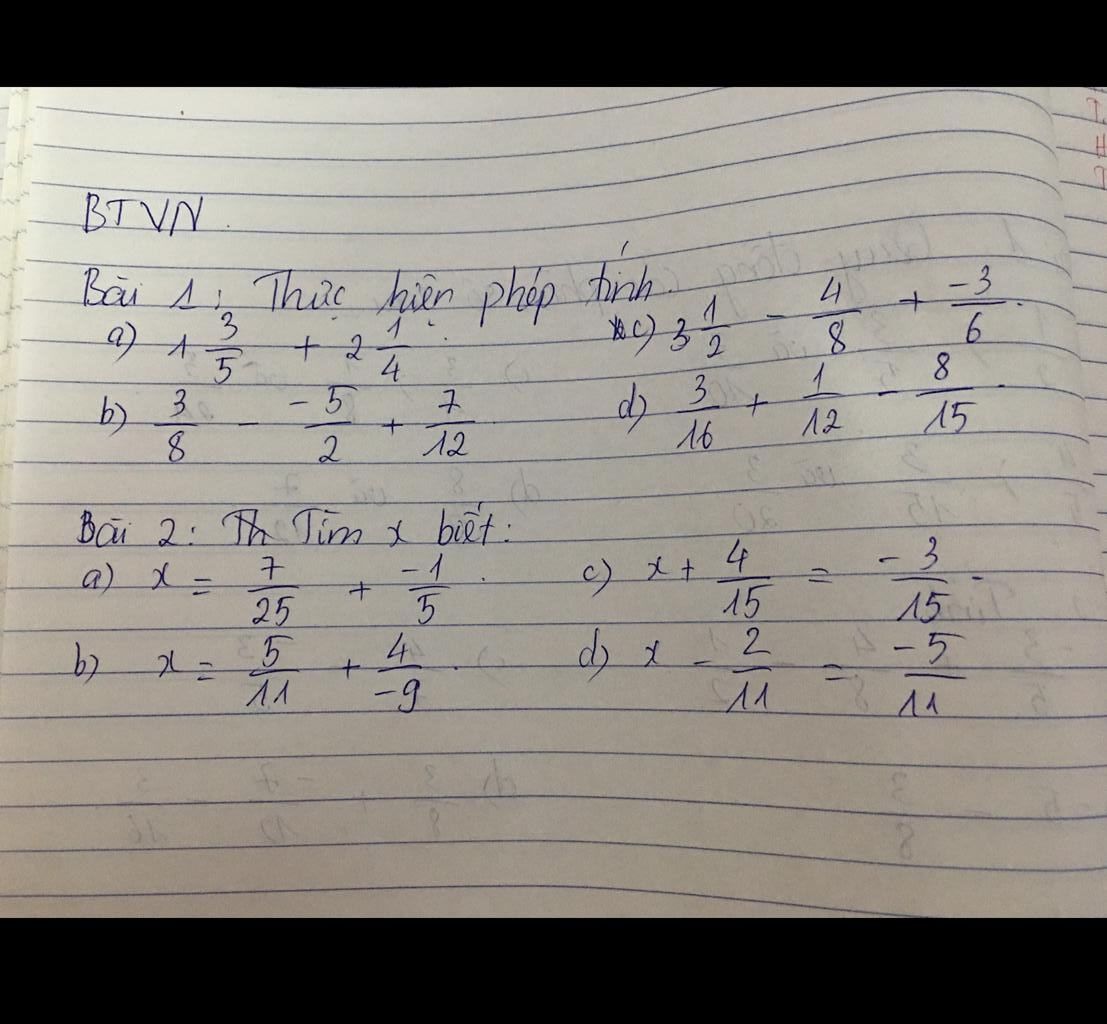 BTVN.
Bài 1: Thực hiện phép tính.
a) 1 3/5 + 2 1/4. c) 3 1/2 - 4/8 + -3/6.
b) 3/8 - -5/2 + 7/12. d) 3/16 + 1/12 - 8/15.
Bài 2: Th Tìm x biết:
a) x = 7/25 + -1/5. c) x + 4/15 = -3/15.
b) x = 5/11 + 4/-9. d) x - 2/11 = -5/11